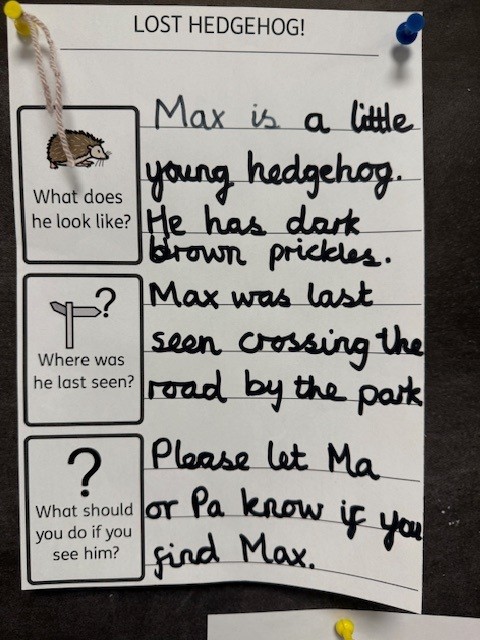 LOST HEDGEHOG!
What does
he look like?
Max is a little
young hedgehog.
He has dark
brown prickles.
?
Where was
he last seen?
Max was last
seen crossing the
road by the park
?
What should
you do if you
see him?
Please let Ma
or Pa know if you
find Max.